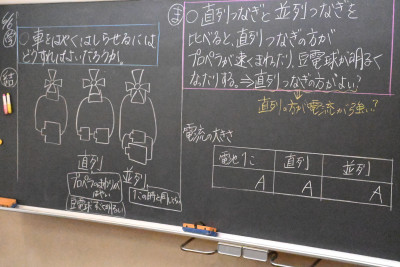 車をはやくはしらせるには
どうすればよいだろうか。
結
直列
プロペラのまわりが
はやい
並列
ま
○直列つなぎと並列つなぎを
比べると、直列つなぎの方が
プロペラが速くまわったり、豆電球が明るく
なったりする。⇒直列つなぎの方がよい?
直列の方が電流が強い?
電流の大きさ
電池1こ 直列 並列
A A A